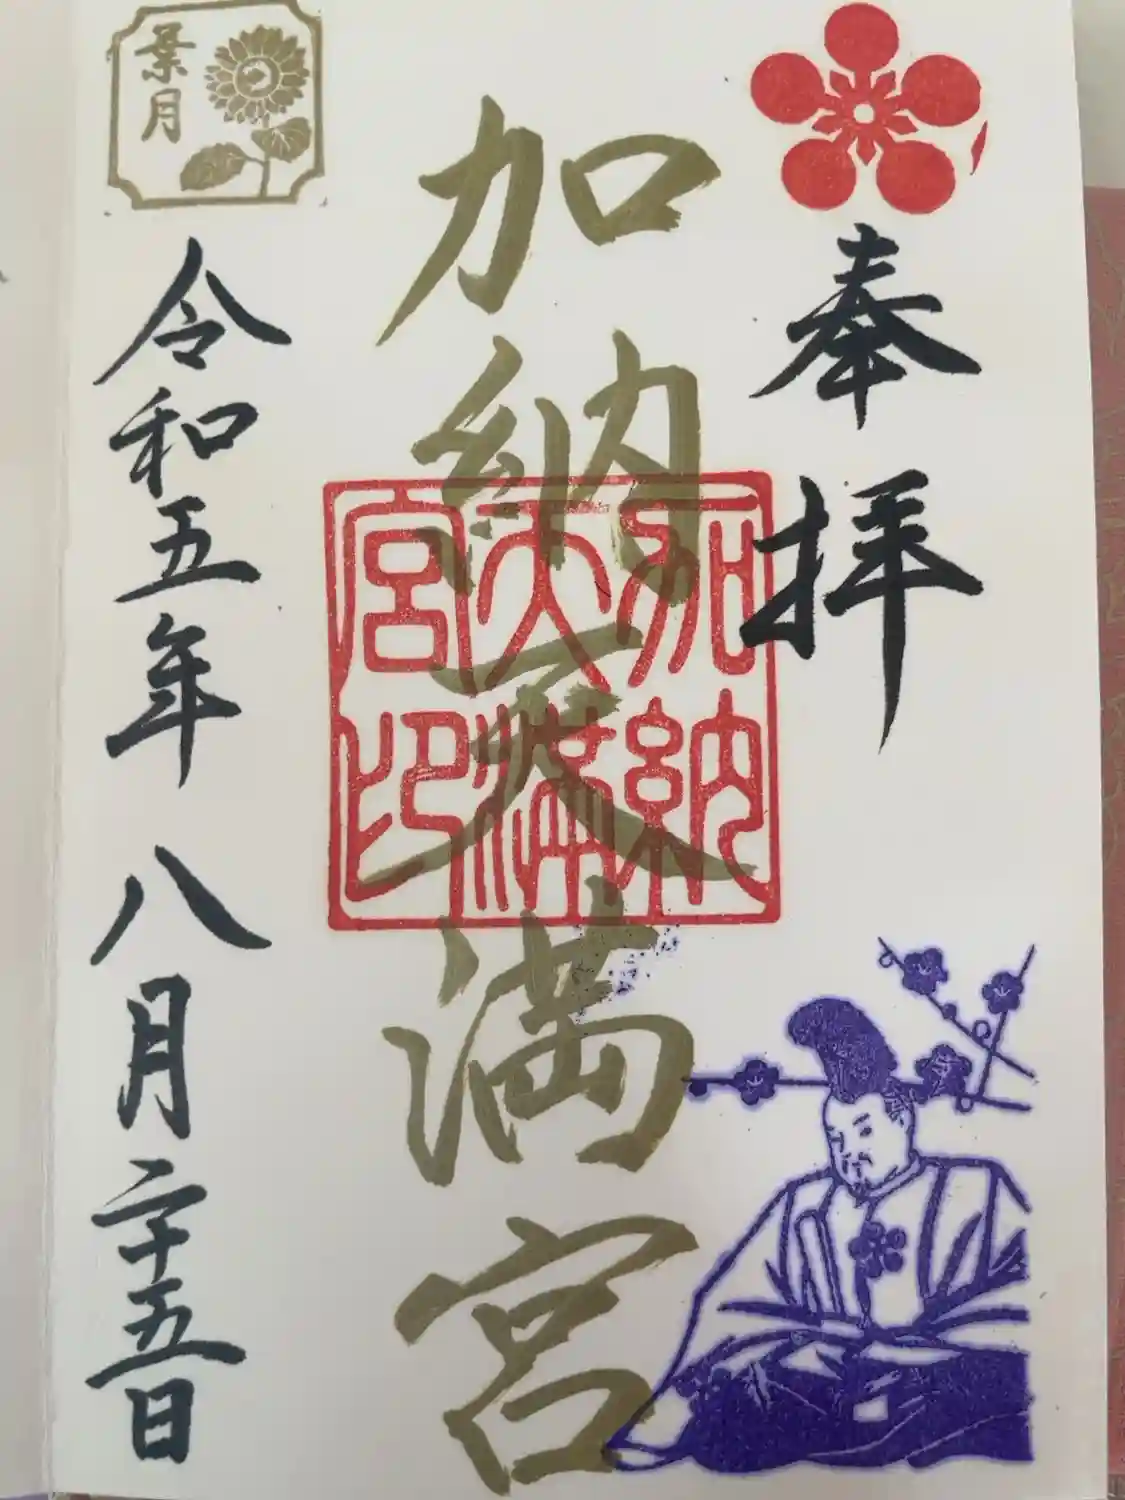 奉拝
加納天満宮
加納天満宮印
葉月
令和五年八月二十五日